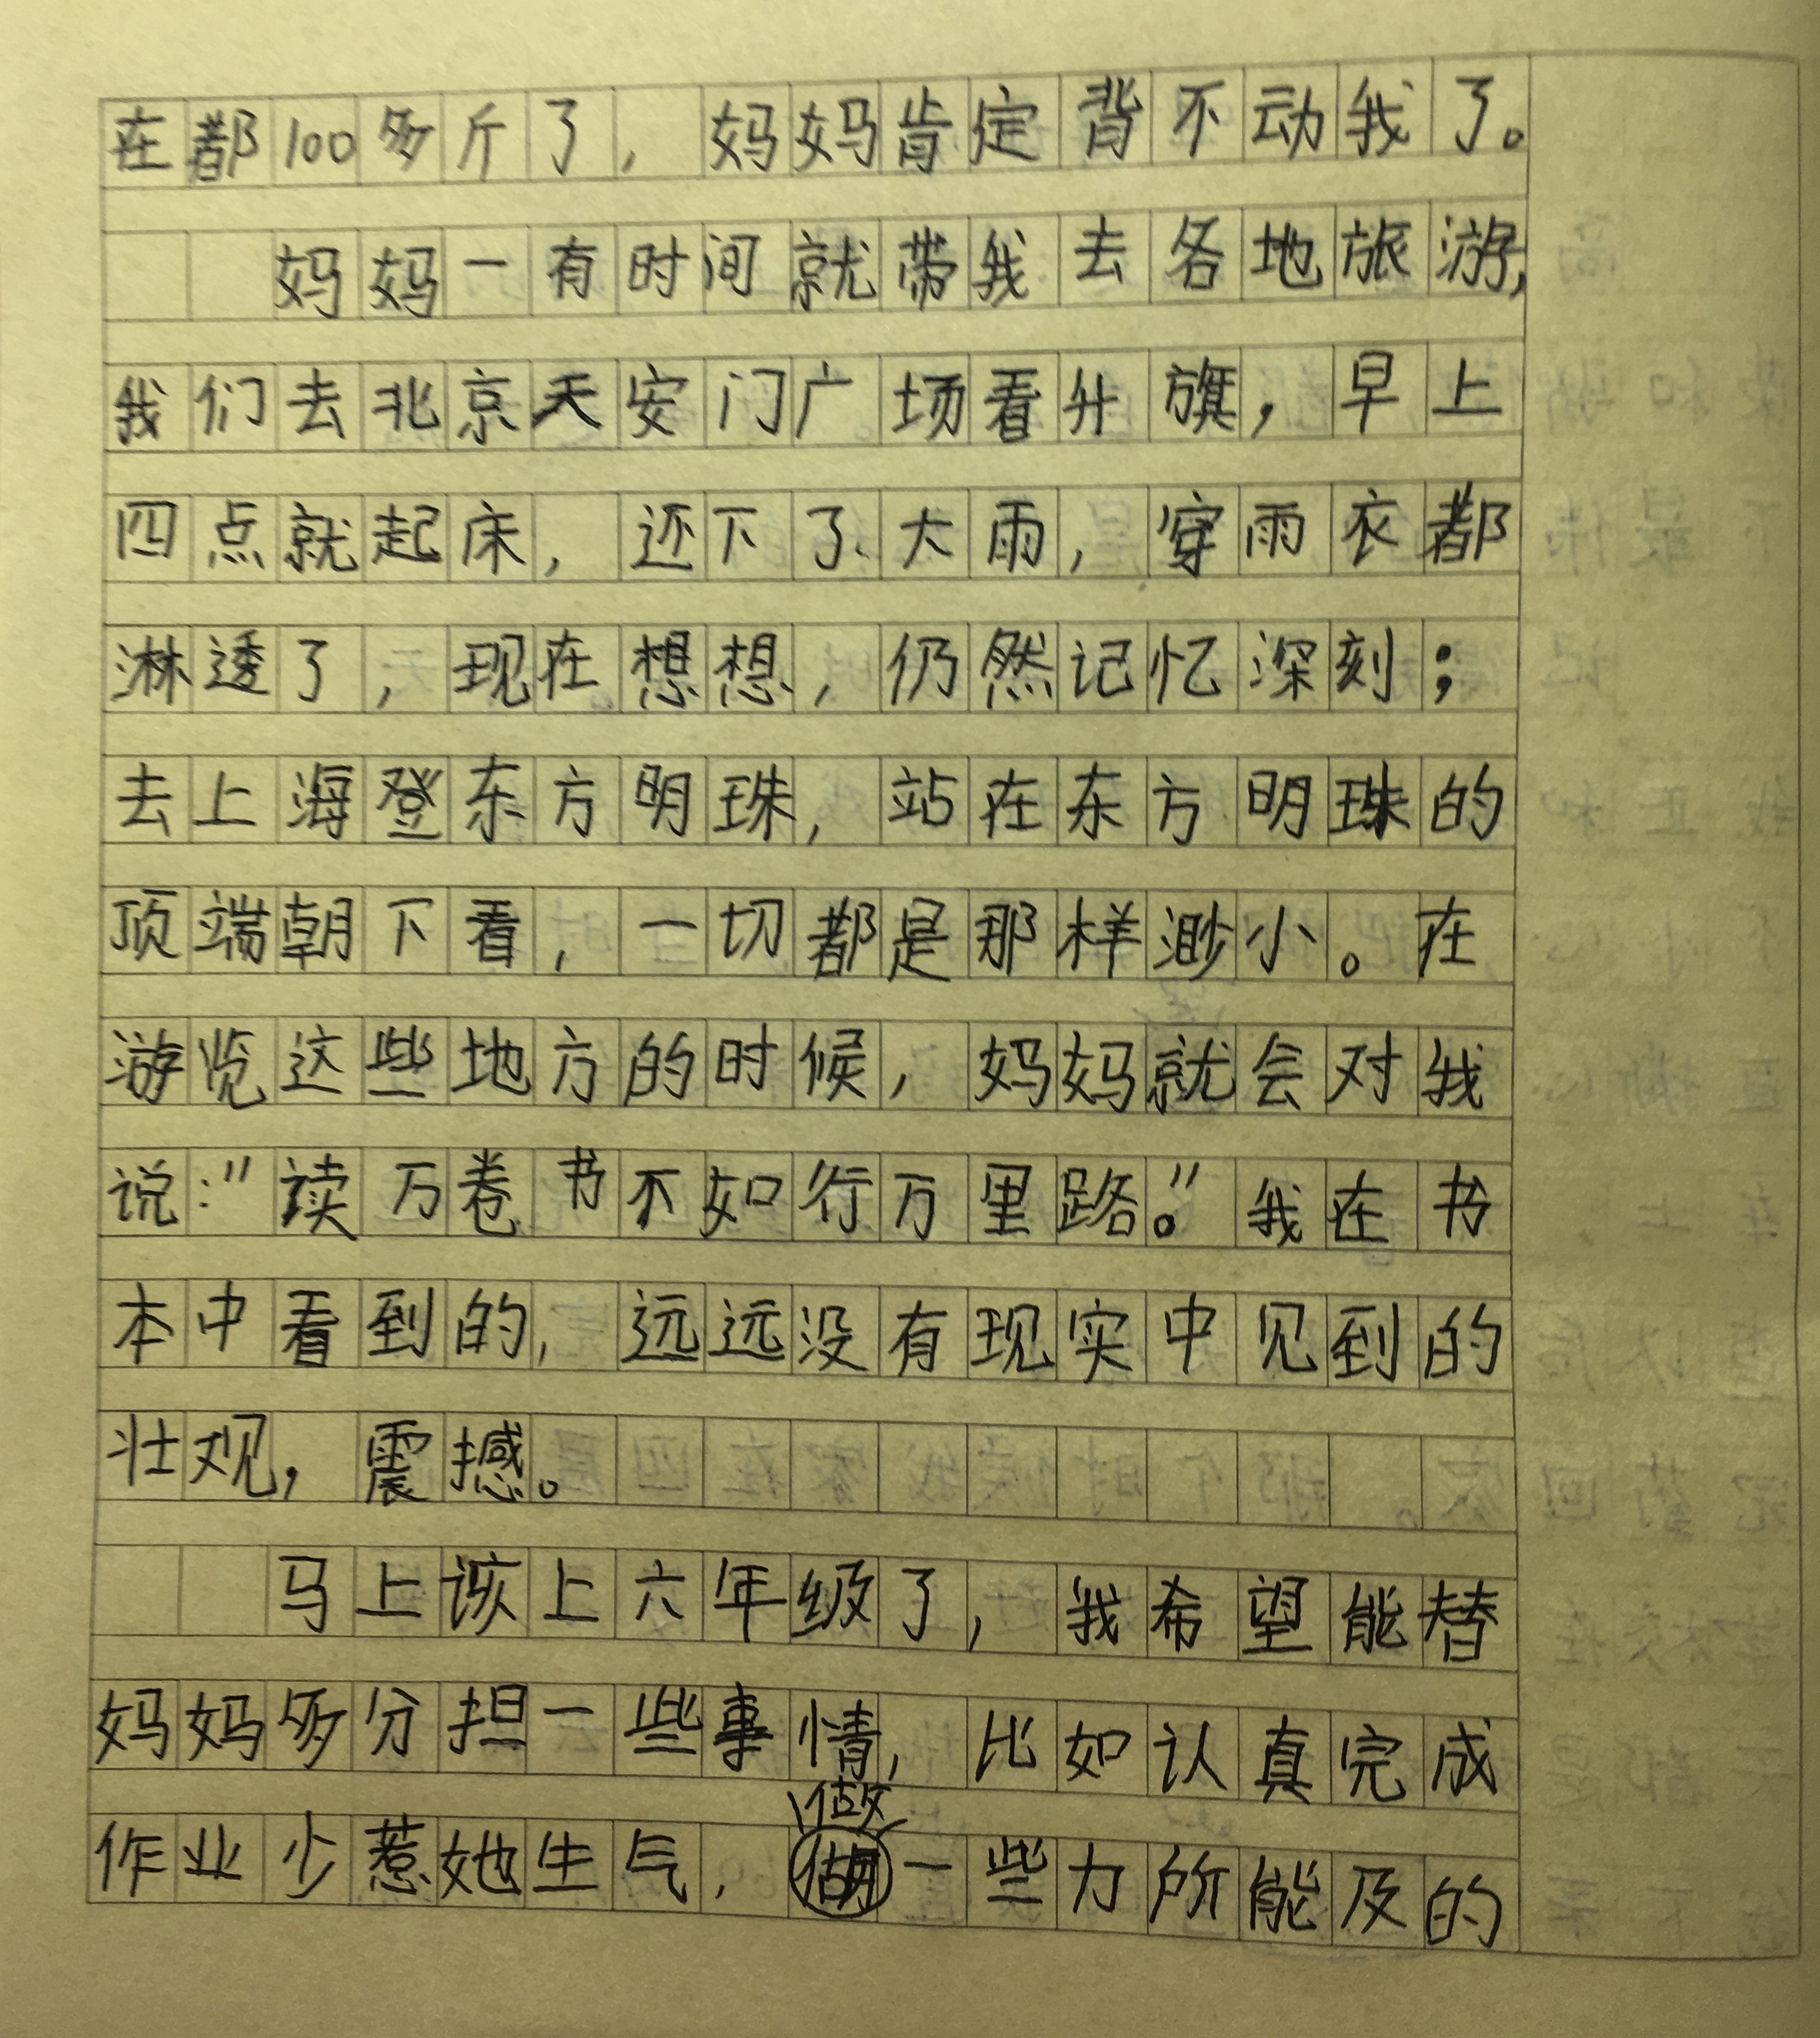 在都100多斤了，妈妈肯定背不动我了。
妈妈一有时间就带我去各地旅游，
我们去北京天安门广场看升旗，早上
四点就起床，还下了大雨，穿雨衣都
淋透了，现在想想，仍然记忆深刻；
去上海登东方明珠，站在东方明珠的
顶端朝下看，一切都是那样渺小。在
游览这些地方的时候，妈妈就会对我
说："读万卷书不如行万里路。"我在书
本中看到的，远远没有现实中见到的
壮观，震撼。
马上该上六年级了，我希望能替
妈妈多分担一些事情，比如认真完成
作业少惹她生气，做一些力所能及的